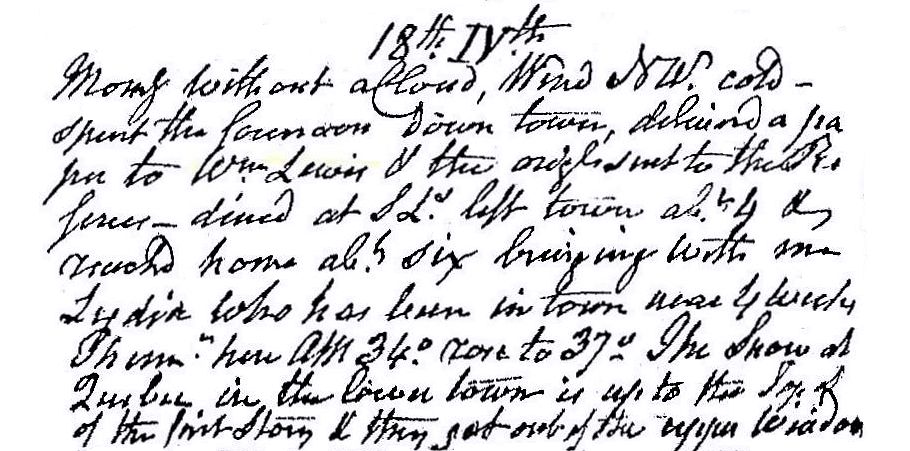 18th IVth
Morng without a Cloud, Wind NW. cold –
spent the forenoon down town, deliverd a pa
per to Wm Lewis & the sent to the Re
ferees – dined at S Ls left town abt 4 &
reachd home abt six bringing with me
Lydia who has been in town near 4 weeks
Themr here AM 34° rose to 37° The Snow at
Quebec in the lower town is up to the Top of
of the first Story & they get out of the upper Window